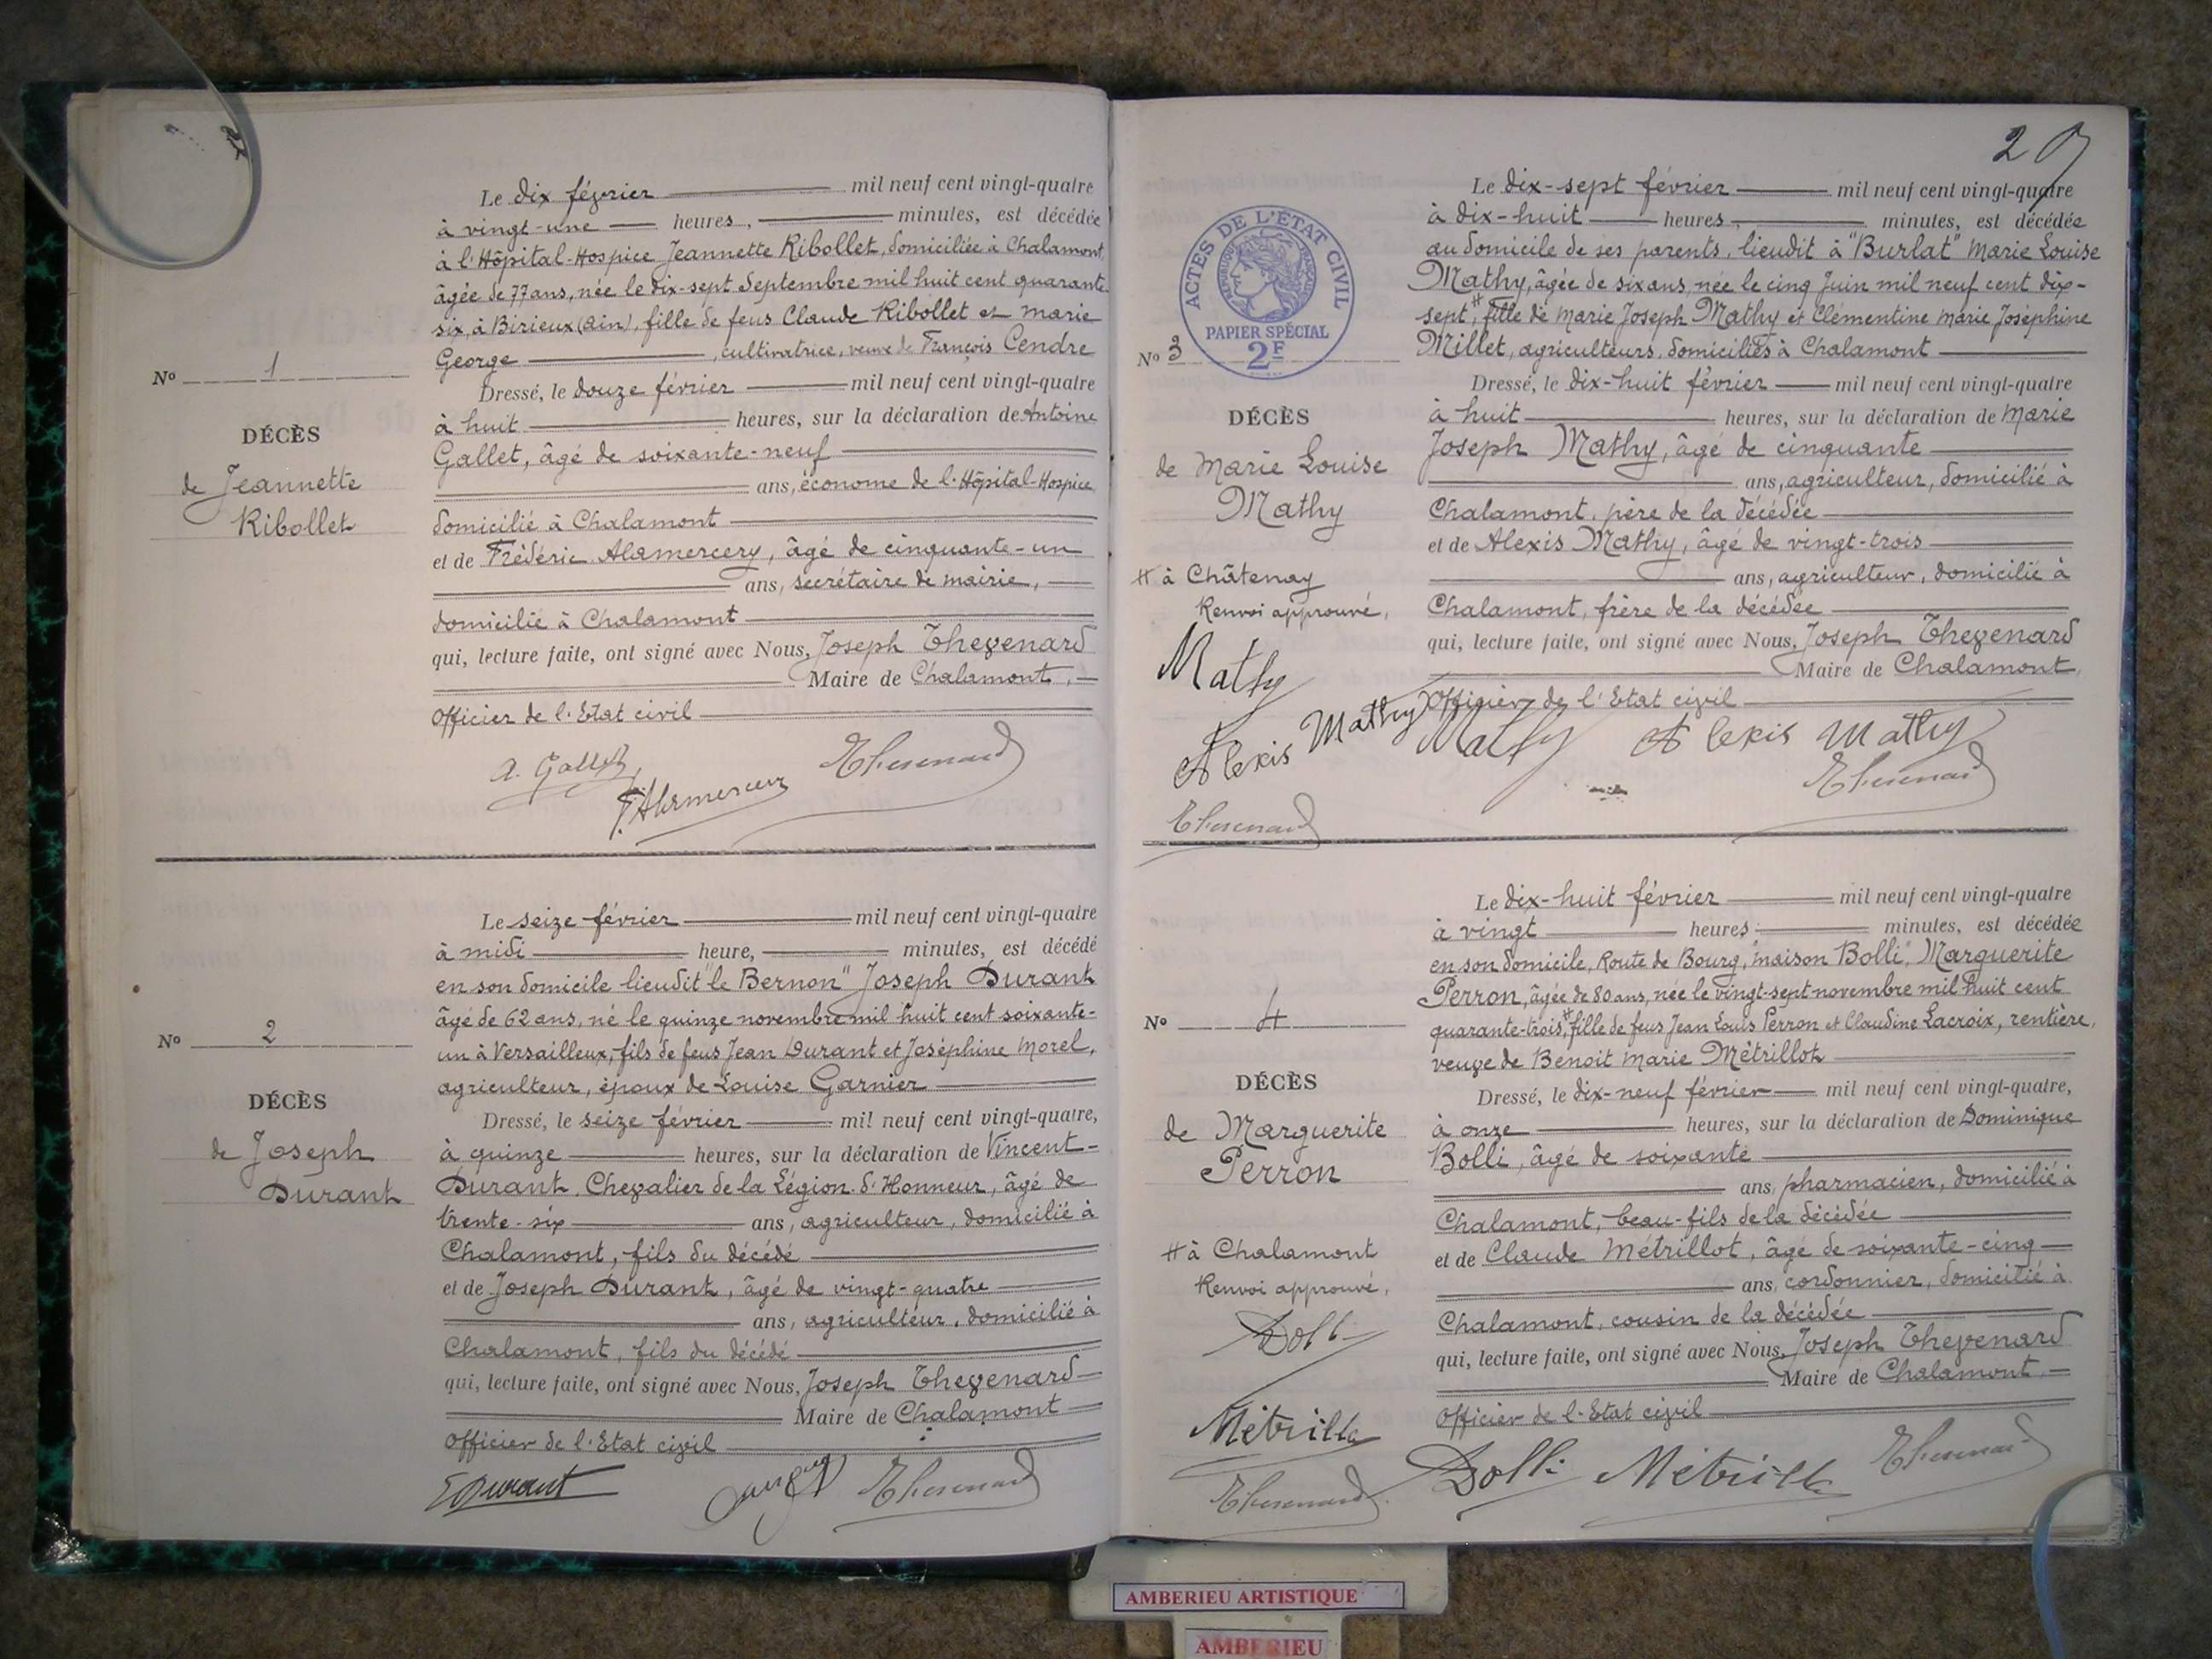 Le dix février mil neuf cent vingt-quatre
à vingt-une heures, minutes, est décédée
à l'Hôpital-Hospice Jeannette Ribollet, domiciliée à Chalamont,
âgée de 77 ans, née le dix-sept Septembre mil huit cent quarante-
six, à Birieux (Ain), fille de feus Claude Ribollet et Marie
George, cultivatrice, veuve de François Cendre
Nº 1
Dressé, le douze février mil neuf cent vingt-quatre
à huit heures, sur la déclaration de Antoine
DÉCÈS
Gallet, âgé de soixante-neuf
de Jeannette
ans, économe de l'Hôpital-Hospice
Ribollet
domicilié à Chalamont
et de Frédéric Alamercery, âgé de cinquante-un
ans, secrétaire de mairie,
domicilié à Chalamont
qui, lecture faite, ont signé avec Nous, Joseph Thevenard
Maire de Chalamont,
Officier de l'Etat civil
A. Gallet
F. Alamercery
Thevenard
Le seize février mil neuf cent vingt-quatre
à midi heure, minutes, est décédé
en son domicile lieudit "le Bernon" Joseph Durant
âgé de 62 ans, né le quinze novembre mil huit cent soixante-
un à Versailleux, fils de feus Jean Durant et Joséphine Morel,
agriculteur, époux de Louise Garnier
Nº 2
DÉCÈS
de Joseph
Durant
Dressé, le seize février mil neuf cent vingt-quatre,
à quinze heures, sur la déclaration de Vincent-
Durant, Chevalier de la Légion d'Honneur, âgé de
trente-six ans, agriculteur, domicilié à
Chalamont, fils du décédé
et de Joseph Durant, âgé de vingt-quatre
ans, agriculteur, domicilié à
Chalamont, fils du décédé
qui, lecture faite, ont signé avec Nous, Joseph Thevenard
Maire de Chalamont
Officier de l'Etat civil
Durant
Thevenard
2
Le dix-sept février mil neuf cent vingt-quatre
à dix-huit heures, minutes, est décédée
au domicile de ses parents, lieudit à "Burlat" Marie Louise
Mathy, âgée de six ans, née le cinq Juin mil neuf cent dix-
sept, # fille de Marie Joseph Mathy et Clémentine Marie Joséphine
Millet, agriculteurs, domiciliés à Chalamont
ACTES DE L'ÉTAT CIVIL
RÉPUBLIQUE FRANÇAISE
PAPIER SPÉCIAL
2F
Nº 3
DÉCÈS
de Marie Louise
Mathy
# à Châtenay
Renvoi approuvé,
Mathy
Alexis Mathy
Thevenard
Dressé, le dix-huit février mil neuf cent vingt-quatre
à huit heures, sur la déclaration de Marie
Joseph Mathy, âgé de cinquante
ans, agriculteur, domicilié à
Chalamont, père de la décédée
et de Alexis Mathy, âgé de vingt-trois
ans, agriculteur, domicilié à
Chalamont, frère de la décédée
qui, lecture faite, ont signé avec Nous, Joseph Thevenard
Maire de Chalamont,
Officier de l'Etat civil
Mathy Alexis Mathy
Thevenard
Le dix-huit février mil neuf cent vingt-quatre
à vingt heures, minutes, est décédée
en son domicile, Route de Bourg, "maison Bolli", Marguerite
Perron, âgée de 80 ans, née le vingt-sept novembre mil huit cent
quarante-trois, # fille de feus Jean Louis Perron et Claudine Lacroix, rentière,
veuve de Benoit Marie Métrillot
Nº 4
DÉCÈS
de Marguerite
Perron
# à Chalamont
Renvoi approuvé,
Bolli
Métrillot
Thevenard
Dressé, le dix-neuf février mil neuf cent vingt-quatre,
à onze heures, sur la déclaration de Dominique
Bolli, âgé de soixante
ans, pharmacien, domicilié à
Chalamont, beau-fils de la décédée
et de Claude Métrillot, âgé de soixante-cinq
ans, cordonnier, domicilié à
Chalamont, cousin de la décédée
qui, lecture faite, ont signé avec Nous, Joseph Thevenard
Maire de Chalamont,
Officier de l'Etat civil
Bolli Métrillot Thevenard
AMBERIEU ARTISTIQUE
AMBERIEU